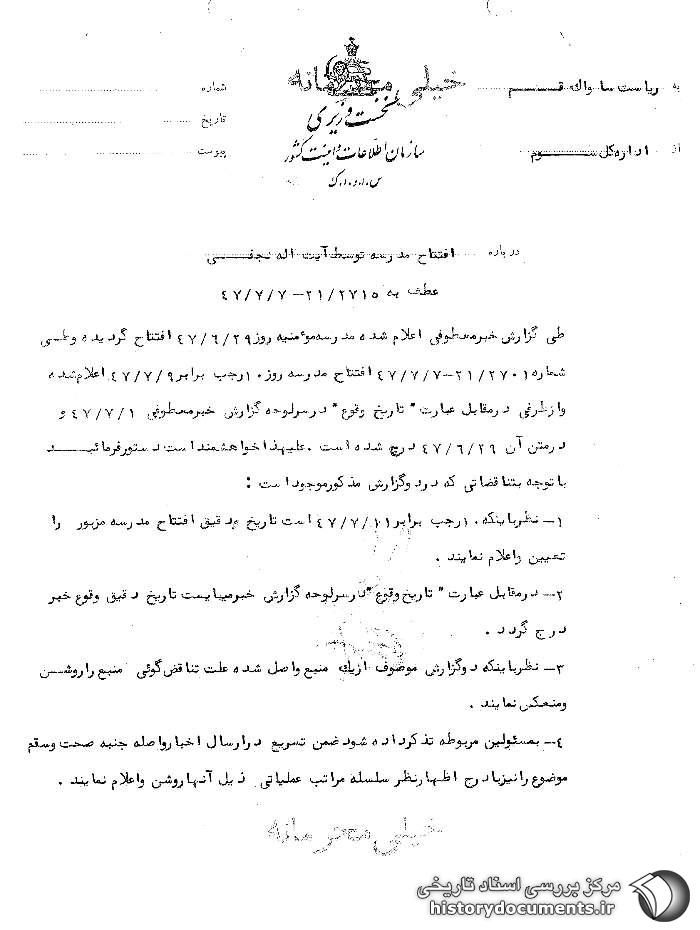 خیلی محرمانه
به ریاست ساواك قم
شماره
نخست وزیری
تاریخ
از اداره کل سوم
سازمان اطلاعات و امنیت کشور
پیوست
س.ا.و.ا.ک
درباره افتتاح مدرسه توسط آیت اله نجفی
عطف به ۲۱/۲۷۱۵-۴۷/۷/۷
طی گزارش خبرمعطوفی اعلام شده مدرسه موٴمنیه روز ۴۷/۶/۲۹ افتتاح گردیده وطی
شماره ۲۱/۲۷۰۱-۴۷/۷/۷ افتتاح مدرسه روز ۱۰رجب برابر ۴۷/۷/۹ اعلام شده
وازطرفی درمقابل عبارت "تاریخ وقوع" درسرلوحه گزارش خبرمعطوفی ۴۷/۷/۱ و
درمتن آن ۴۷/۶/۲۹ درج شده است .علیهذا خواهشمند است دستورفرمائید
با توجه بتناقضاتی که دردوگزارش مذکورموجود است :
۱- نظرباینکه ۱۰رجب برابر ۴۷/۷/۱۱ است تاریخ دقیق افتتاح مدرسه مزبور را
تعیین واعلام نمایند .
۲- درمقابل عبارت "تاریخ وقوع" درسرلوحه گزارش خبرمیبایست تاریخ دقیق وقوع خبر
درج گردد .
۳- نظرباینکه دوگزارش موصوف ازیك منبع واصل شده علت تناقض گوئی منبع راروشن
ومنعکس نمایند .
۴- بمسئولین مربوطه تذکرداده شود ضمن تسریع درارسال اخبارواصله جنبه صحت وسقم
موضوع رانیزبادرج اظهارنظر سلسله مراتب عملیاتی ذیل آنهاروشن واعلام نمایند .
خیلی محرمانه
مرکز بررسی اسناد تاریخی
historydocuments.ir